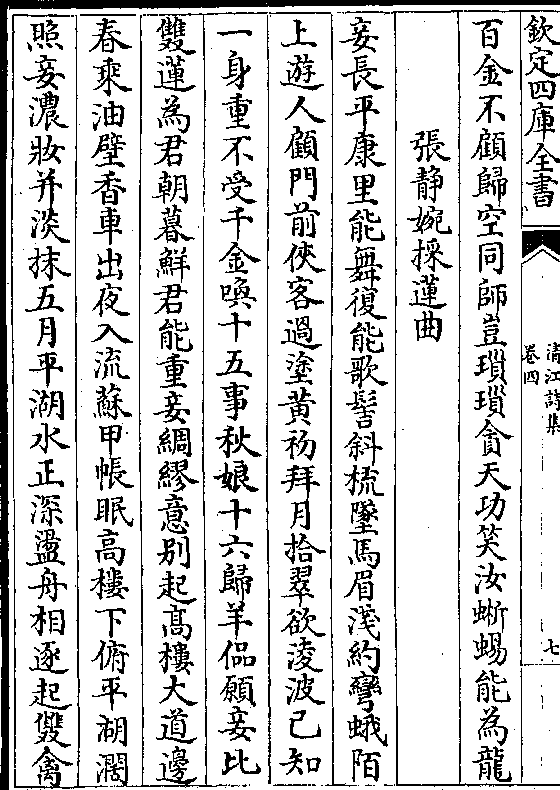 欽定四庫全書
清江詩集
卷四
七
百金不顧歸空同師豈瑣瑣貪天功笑汝蜥蜴能為龍
張静婉採蓮曲
妾長平康里能舞復能歌髻斜梳墜馬眉淺約彎蛾陌
上遊人顧門前俠客過塗黄初拜月拾翠欲凌波已知
一身重不受千金喚十五事秋娘十六歸羊侃願妾比
雙蓮為君朝暮鮮君能重妾綢繆意别起髙樓大道邊
春乘油壁香車出夜入流蘇甲帳眠高樓下俯平湖濶
照妾濃妝并淡抹五月平湖水正深盪舟相逐起雙禽